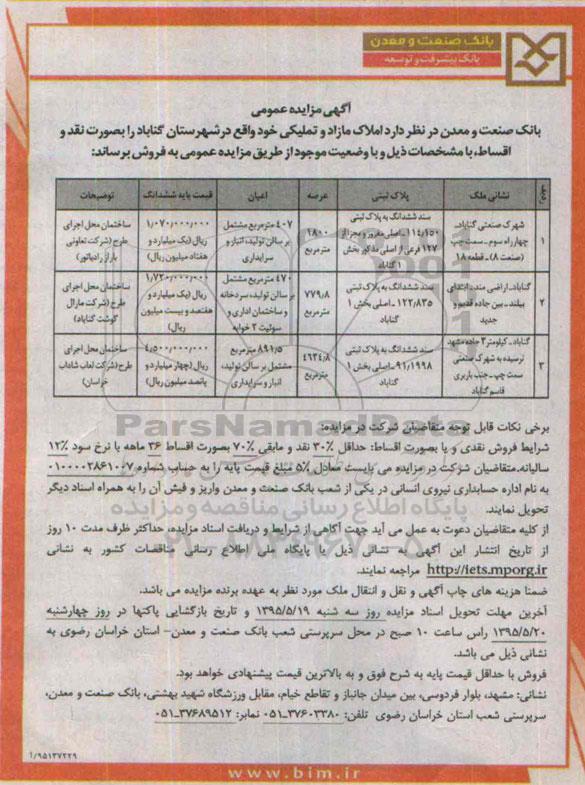 بانک صنعت و معدن
بانک پیشرفت و توسعه
آگهی مزایده عمومی
بانک صنعت و معدن در نظر دارد املاک مازاد و تملیکی خود واقع در شهرستان گناباد را بصورت نقد و
اقساط، با مشخصات ذیل و با وضعیت موجود از طریق مزایده عمومی به فروش برساند:
ردیف نشانی ملک پلاک ثبتی عرصه اعیان قیمت پایه ششدانگ توضیحات
۱
شهرک صنعتی گناباد_
چهارراه سوم _ سمت چپ
(صنعت ۸)_ قطعه ۱۸
سند ششدانگ به پلاک ثبتی
۱۱۴/۱۵۰ _ اصلی مفروز و مجزا از
۱۲۷ فرعی از اصلی مذکور بخش
۱ گناباد
۱۸۰۰
مترمربع
۴۰۷ مترمربع مشتمل
بر سالن تولید، انبار و
سرایداری
۱/۰۷۰/۰۰۰/۰۰۰
ریال (یک میلیارد و
هفتاد میلیون ریال)
ساختمان محل اجرای
طرح (شرکت تعاونی
باراز رادیاتور)
۲
گناباد_ اراضی مند_ ابتدای
بیلند _ بین جاده قدیم و
جدید
سند ششدانگ به پلاک ثبتی
۱۲۲/۸۳۵ _ اصلی بخش ۱
گناباد
۷۷۹/۸
مترمربع
۴۷۰ مترمربع مشتمل
بر سالن تولید، سردخانه
و ساختمان اداری و
سوئیت ۲ خوابه
۱/۷۲۰/۰۰۰/۰۰۰
ریال (یک میلیارد و
هفتصد و بیست میلیون
ریال)
ساختمان محل اجرای
طرح (شرکت مارال
گوشت گناباد)
۳
گناباد_ کیلومتر ۳ جاده مشهد
نرسیده به شهرک صنعتی
سمت چپ _ جنب باربری
قاسم گناباد
سند ششدانگ به پلاک ثبتی
۹۱/۱۹۹۸ _ اصلی بخش ۱
گناباد
۴۹۳۴/۸
مترمربع
۸۹۱/۵ مترمربع
مشتمل بر سالن تولید،
انبار و سرایداری
۴/۵۰۰/۰۰۰/۰۰۰
ریال (چهار میلیارد و
پانصد میلیون ریال)
ساختمان محل اجرای
طرح (شرکت لعاب شاداب
خراسان)
برخی نکات قابل توجه متقاضیان شرکت در مزایده:
شرایط فروش نقدی و یا بصورت اقساط: حداقل ۳۰٪ نقد و مابقی ۷۰٪ بصورت اقساط ۳۶ ماهه با نرخ سود ۱۲٪
سالیانه.متقاضیان شرکت در مزایده می بایست معادل ۵٪ مبلغ قیمت پایه را به حساب شماره ۰۱۰۰۰۰۲۸۶۱۰۰۷
به نام اداره حسابداری نیروی انسانی در یکی از شعب بانک صنعت و معدن واریز و فیش آن را به همراه اسناد دیگر
تحویل نمایند.
از کلیه متقاضیان دعوت به عمل می آید جهت آگاهی از شرایط و دریافت اسناد مزایده، حداکثر ظرف مدت ۱۰ روز
از تاریخ انتشار این آگهی به نشانی ذیل یا پایگاه ملی اطلاع رسانی مناقصات کشور به نشانی
http://iets.mporg.ir مراجعه نمایند.
ضمنا هزینه های چاپ آگهی و نقل و انتقال ملک مورد نظر به عهده برنده مزایده می باشد.
آخرین مهلت تحویل اسناد مزایده روز سه شنبه ۱۳۹۵/۵/۱۹ و تاریخ بازگشایی پاکتها در روز چهارشنبه
۱۳۹۵/۵/۲۰ راس ساعت ۱۰ صبح در محل سرپرستی شعب بانک صنعت و معدن– استان خراسان رضوی به
نشانی ذیل می باشد.
فروش با حداقل قیمت پایه به شرح فوق و به بالاترین قیمت پیشنهادی خواهد بود.
نشانی: مشهد، بلوار فردوسی، بین میدان جانباز و تقاطع خیام، مقابل ورزشگاه شهید بهشتی، بانک صنعت و معدن،
سرپرستی شعب استان خراسان رضوی تلفن: ۳۷۶۰۳۳۸۰_۰۵۱ نمابر: ۳۷۶۸۹۵۱۲_۰۵۱
۱/۹۵۱۳۷۲۲۹
www.bim.ir
ParsNamadData
پایگاه اطلاع رسانی مناقصه و مزایده